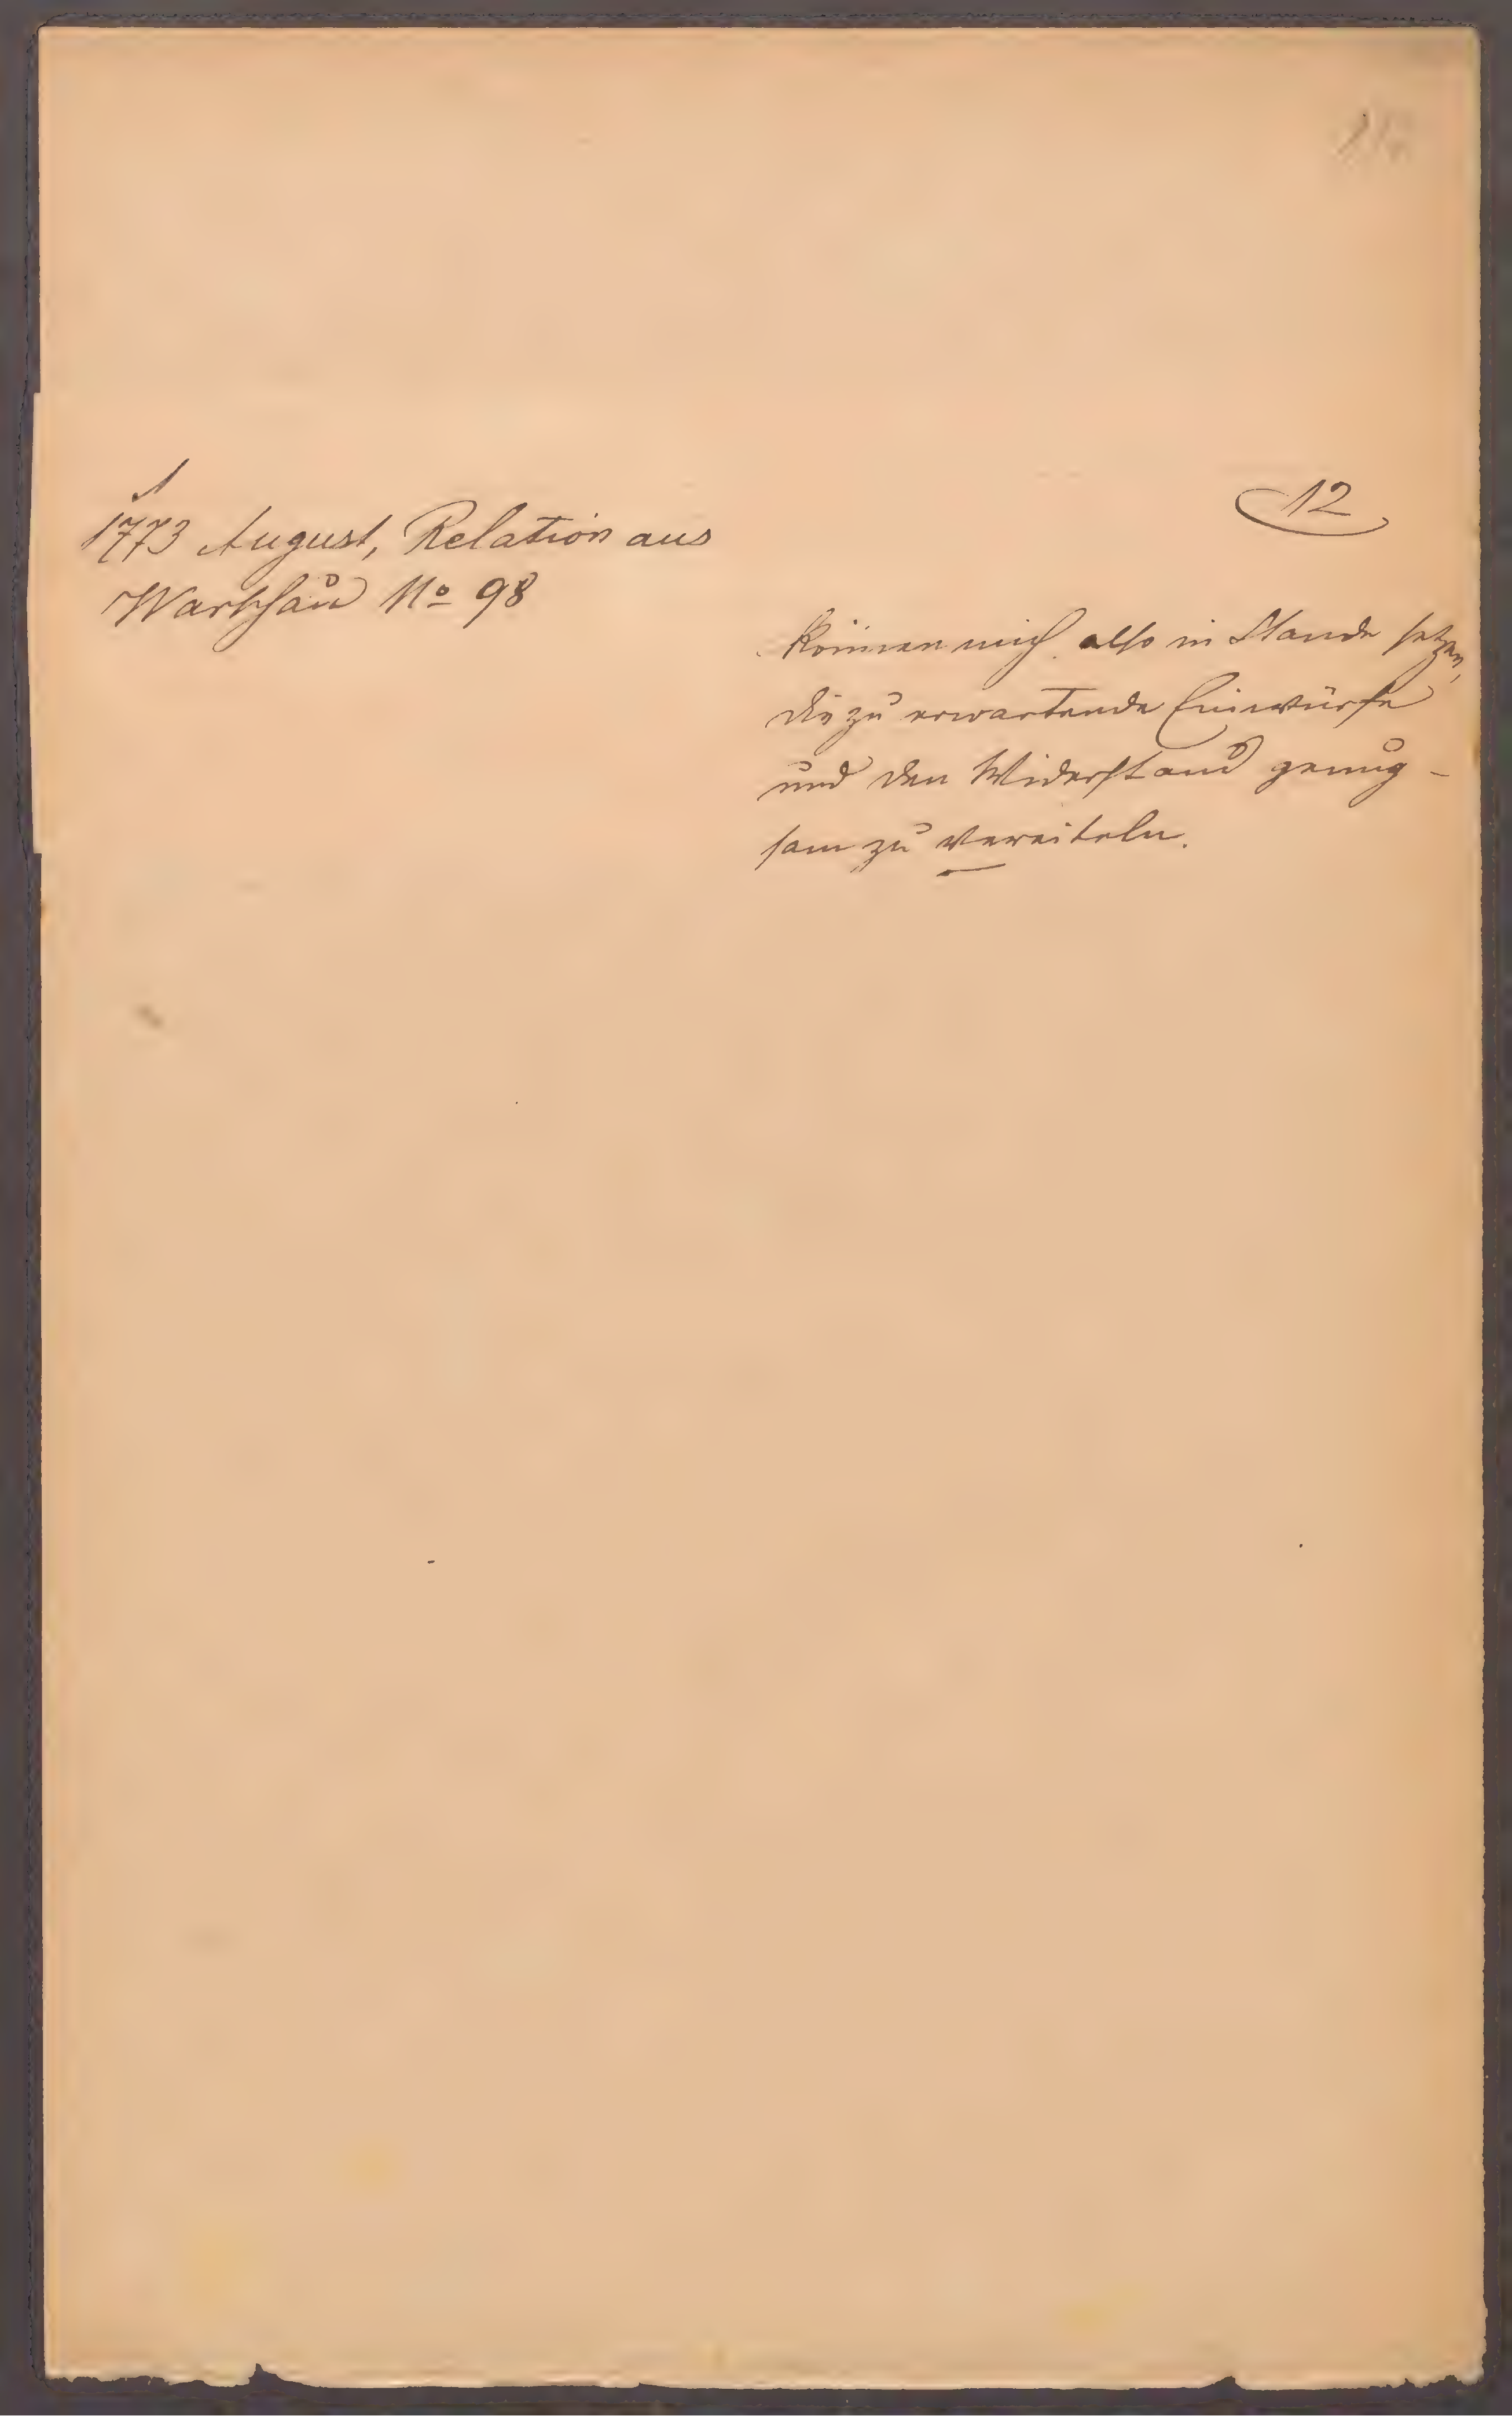 1
1773 August, Relation aus
Warschau No 98
12
können mich also in Stande setzen,
die zu erwartende Einwürfe
und den Widerstand genug-
sam zu vereiteln.